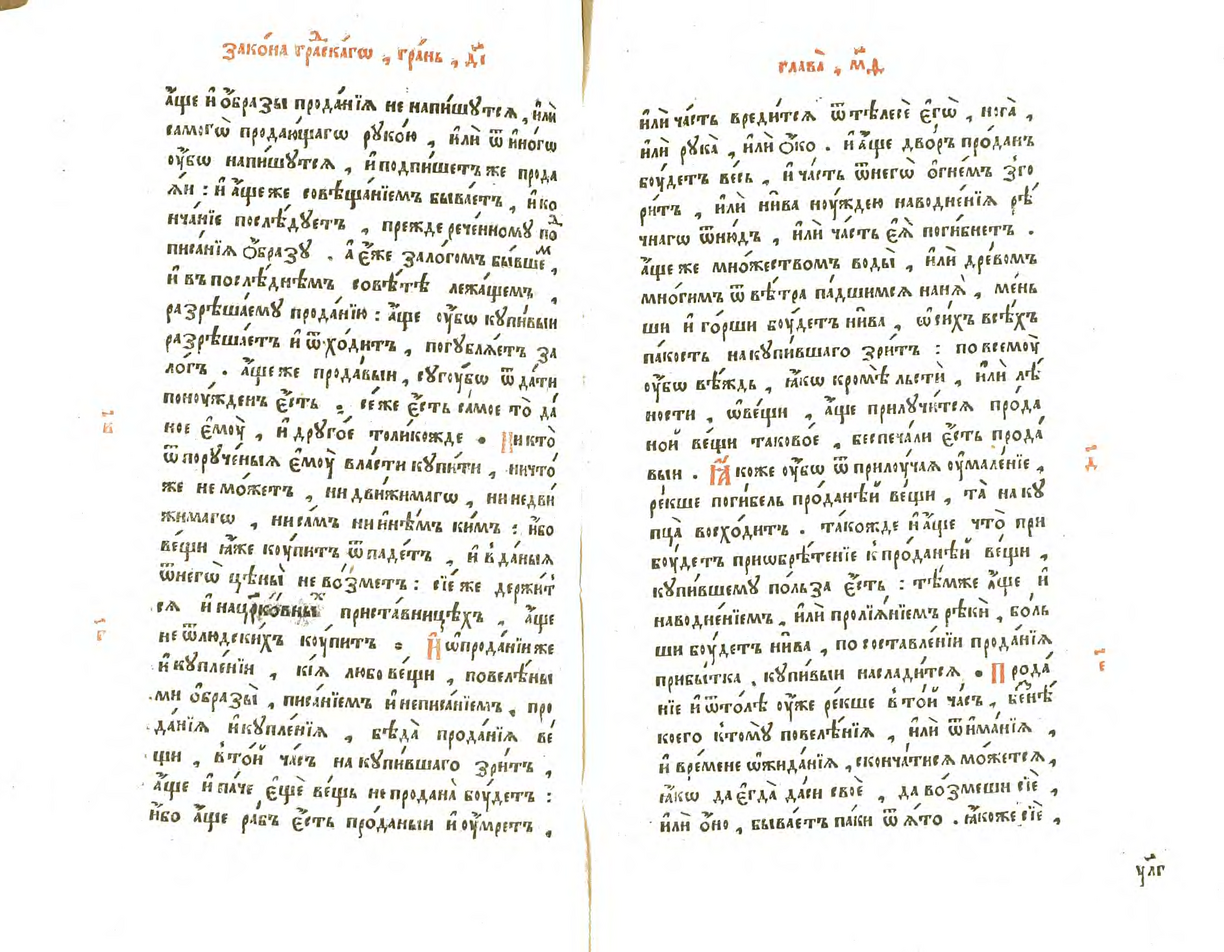 Зако́на гра́скагѡ , гра́нь , д҃і
а҆́ще и҆ ѻ҆́бразы прода́нїѧ не напи́шꙋтсѧ , и҆лѝ
самогѡ̀ продаю́щагѡ рꙋко́ю , и҆́лѝ ѿ и҆но́гѡ
оу҆́бѡ напи́шꙋтсѧ , и҆подпи́шетъ же прода
ѧ́и : и҆ а҆́ще же совѣща́нїемъ быва́етъ , и҆ ко
нча́нїе послѣ́дꙋетъ , прежде рече́нномꙋ по
писа́нїѧ ѻ҆́бразꙋ . а҆ є҆́же зало́гомъ бы́вше ,
и҆ въ послѣ́днѣмъ совѣ́тѣ лежа́щемъ ,
разрѣша́емꙋ прода́нїю : а҆́ще оу҆́бѡ кꙋпи́выи
разрѣша́етъ и҆ ѿхо́дитъ , погꙋблѧ́етъ за
ло́гъ . а҆́ще же прода́выи , сꙋгоу́бѡ ѿда́ти
поноу́жденъ є҆́сть . се́же є҆́сть са́мое то̀ да́
ное є҆моу̀ , и҆ дрꙋго́е толи́кожде . Никто̀
ѿ порꙋче́ныѧ є҆моу̀ вла́сти кꙋпи́ти , ничто́
же не мо́жетъ , ни дви́жимагѡ , ни недви́
жимагѡ , ни са́мъ ни и҆нѣ́мъ ки́мъ : и҆́бо
ве́щи ꙗ҆́же коу́питъ ѿпаде́тъ , и҆ вда́ныѧ
ѿнегѡ̀ цѣны̀ не во́зметъ : сїе́ же держи́т
сѧ и҆ нацр҃ко́вны приста́вницѣхъ , а҆́ще
не ѿлюдски́хъ коу́питъ . И҆ ѡ҆прода́нїи же
и҆ кꙋпле́нїи , кі́ѧ любо ве́щи , повелѣ́ны
ми ѻ҆́бразы̀ , писа́нїемъ и҆ неписа́нїемъ , про
да́нїѧ и҆ кꙋпле́нїѧ , бѣда̀ прода́нїѧ ве́
щи , в то́й ча́съ на кꙋпи́вшаго зри́тъ ,
а҆́ще и҆ па́че є҆щѐ ве́щь не продана̀ боу́детъ :
и҆́бо а҆́ще ра́бъ є҆́сть про́даныи и҆ оу҆́мретъ ,
в҃
г҃
глава̀ , м҃д
и҆лѝ ча́сть вреди́тсѧ ѿ тѣлесѐ є҆гѡ̀ , нога̀ ,
и҆лѝ рꙋка̀ , и҆лѝ ѻ҆́ко . и҆ а҆́ще дво́ръ про́данъ
боу́детъ ве́сь , и҆ ча́сть ѿнегѡ̀ ѻ҆гне́мъ зго
ри́тъ , и҆лѝ ни́ва ноу́ждею наводне́нїѧ рѣ́
чнагѡ ѿню́дъ , и҆лѝ ча́сть є҆ѧ̀ поги́бнетъ .
а҆́ще же мно́жествомъ воды̀ , и҆лѝ дре́вомъ
мно́гимъ ѿ вѣ́тра па́дшимсѧ нанѧ̀ , ме́нь
ши и҆ го́рши боу́детъ ни́ва , ѡ҆ си́хъ всѣ́хъ
па́кость на кꙋпи́вшаго зри́тъ : по всемоу̀
оу҆́бѡ вѣ́ждь , ꙗ҆́кѡ кромѣ̀ льстѝ , и҆лѝ лѣ́
ности , ѡ҆ ве́щи , а҆́ще прилꙋчи́тсѧ про́да
ной ве́щи таково́е , беспеча́ли є҆́сть прода́
выи . Ꙗ҆́коже оу҆́бѡ ѿ прилоу́чаѧ оу҆мале́нїе ,
ре́кше поги́бель про́данѣй ве́щи , та̀ на кꙋ
пца̀ восхо́дитъ . тако́жде и҆ а҆́ще что̀ при
боу́детъ приѡбрѣ́тенїе к про́данѣй ве́щи ,
кꙋпи́вшемꙋ по́льза є҆́сть : тѣ́мже а҆́ще и҆
наводне́нїемъ , и҆лѝ пролїѧ́нїемъ рѣкѝ , бо́ль
ши боу́детъ ни́ва , по составле́нїи прода́нїѧ
прибы́тка , кꙋпи́выи наслади́тсѧ . Прода́
нїе и҆ ѿто́лѣ оу҆́же ре́кше в то́й ча́съ , кромѣ̀
коего̀ ктомꙋ̀ повелѣ́нїѧ , и҆лѝ ѿи҆ма́нїѧ ,
и҆ вре́мене ѡ҆жида́нїѧ , сконча́тисѧ мо́жетсѧ ,
ꙗ҆́кѡ да є҆гда̀ да́си своѐ , да во́змеши сїѐ ,
и҆лѝ ѻ҆́но , быва́етъ па́ки ѿѧто . ꙗ҆́коже сїѐ ,
д҃
є҃
ул҃г